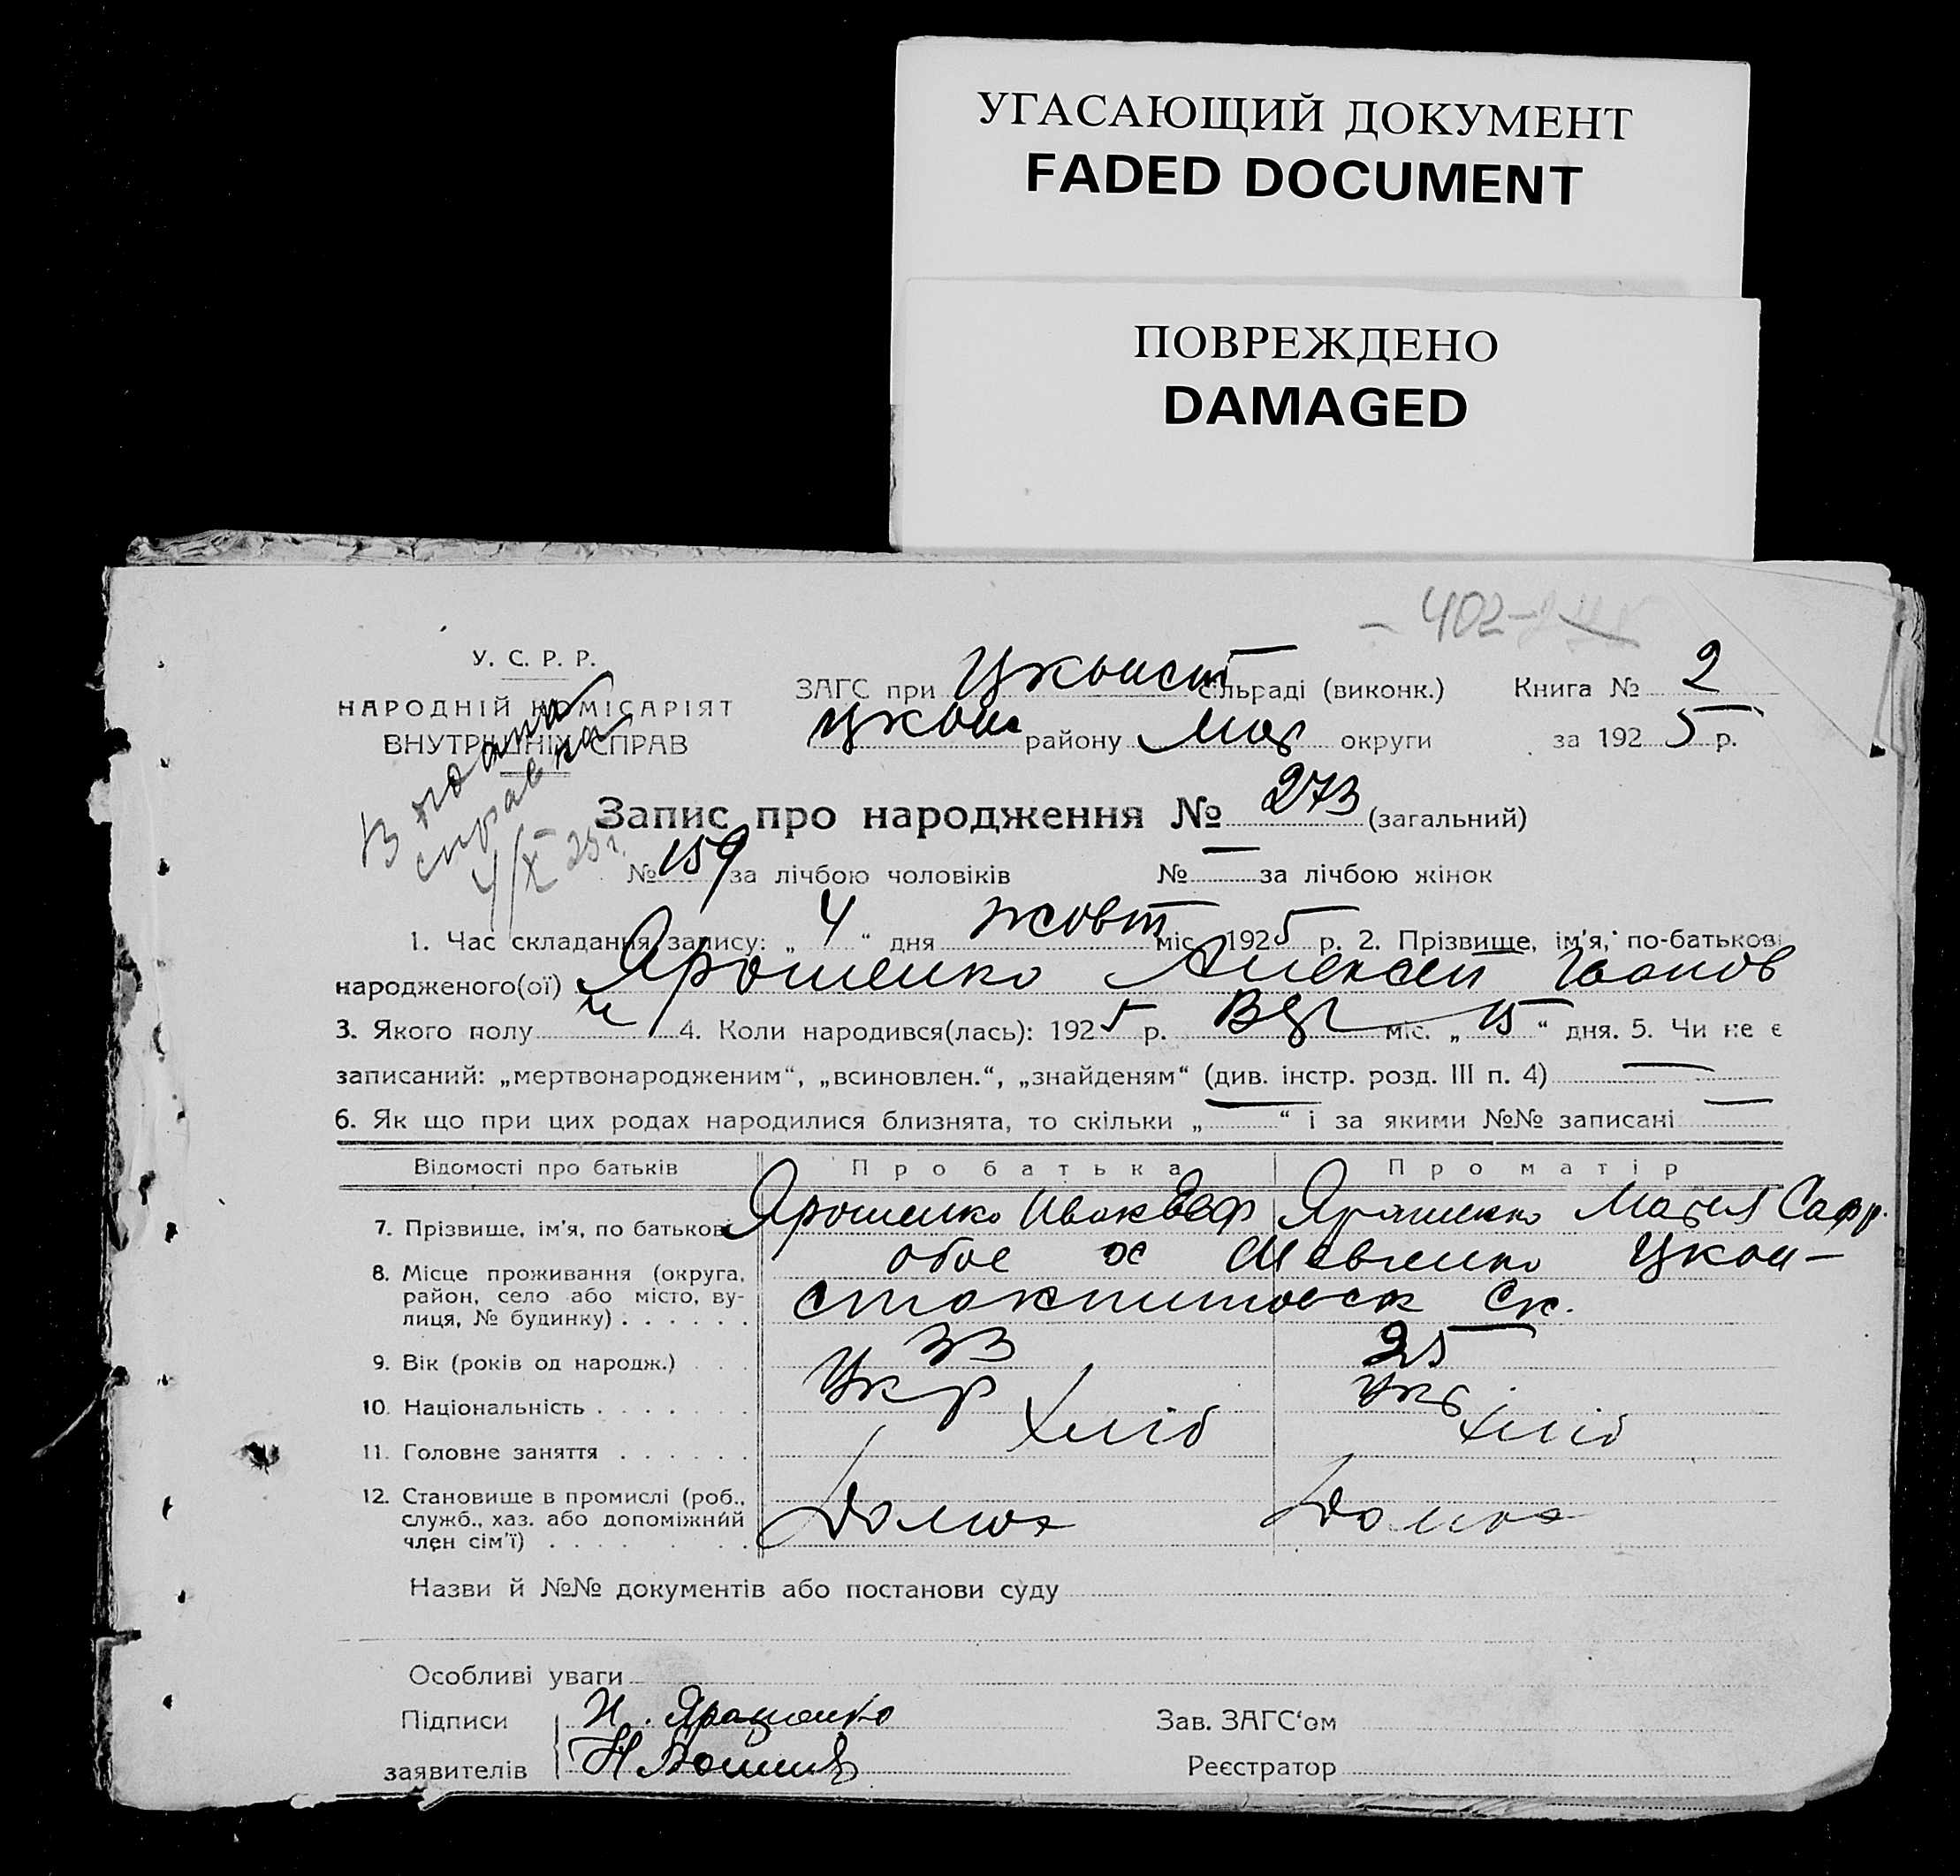 УГАСАЮЩИЙ ДОКУМЕНТ
FADED DOCUMENT
ПОВРЕЖДЕНО
DAMAGED
402
У. С. Р. Р.
НАРОДНІЙ КОМІСАРІЯТ
ВНУТРІШНІХ СПРАВ
ЗАГС при сільраді (виконк.) Книга № 2
району округи за 1925 р.
Запис про народження № 273 (загальний)
№ 159 за лічбою чоловіків № — за лічбою жінок
справка
1. Час складання запису: „ 4 “ дня жовт міс. 1925 р. 2. Прізвище, ім'я, по-батькові
народженого(ої) Ярошенко Алексей Іванов
3. Якого полу ч 4. Коли народився(лась): 1925 р. міс. „ 15 “ дня. 5. Чи не є
записаний: „мертвонародженим“, „всиновлен.“, „знайденям“ (див. інстр. розд. III п. 4) —
6. Як що при цих родах народилися близнята, то скільки „ — “ і за якими №№ записані —
Відомості про батьків Про батька Про матір
7. Прізвище, ім'я, по батькові Ярошенко Иван Ярошенко Мария
8. Місце проживання (округа, район, село або місто, вулиця, № будинку) обое
9. Вік (років од народж.) 33 25
10. Національність Укр Укр
11. Головне заняття Хліб Хліб
12. Становище в промислі (роб., служб., хаз. або допоміжний член сім'ї)
Назви й №№ документів або постанови суду
Особливі уваги
Підписи И. Ярошенко Зав. ЗАГС'ом
заявителів Реєстратор